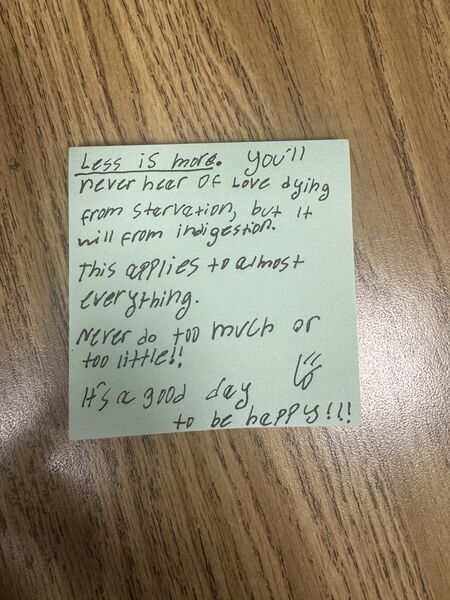 Less is more. You'll
never hear of Love dying
from starvation, but it
will from indigestion.
This applies to almost
everything.
Never do too much or
too little!!
It's a good day
to be happy!!!